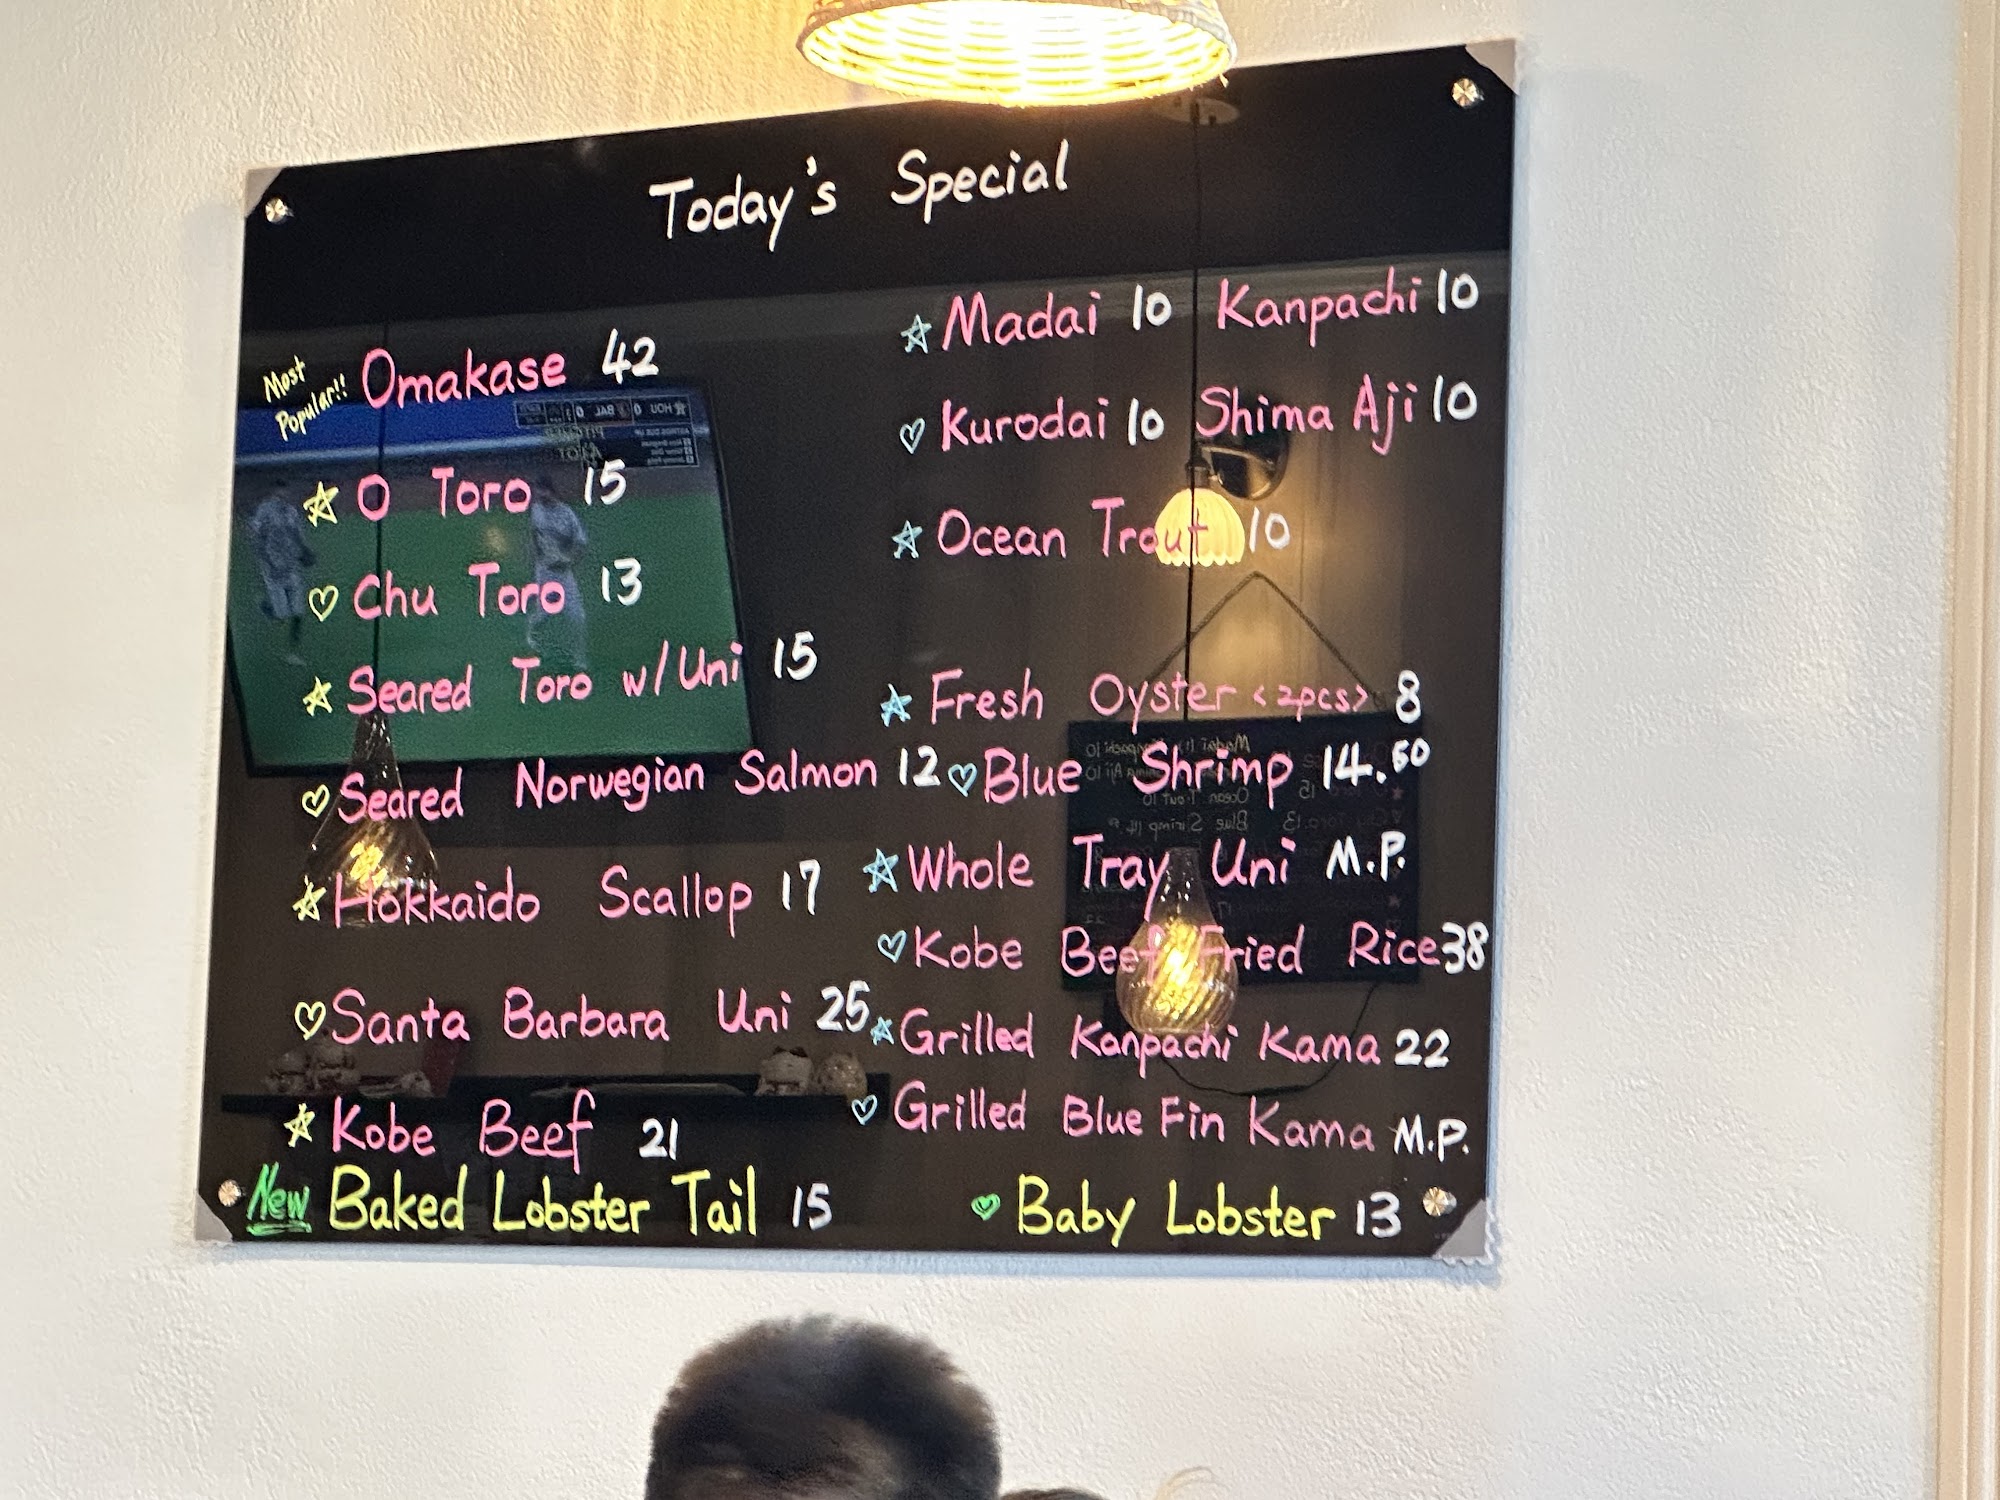 Today's Special
Most
Popular!!
Omakase 42
O Toro 15
Chu Toro 13
Seared Toro w/Uni 15
Seared Norwegian Salmon 12
Hokkaido Scallop 17
Santa Barbara Uni 25
Kobe Beef 21
New Baked Lobster Tail 15
Madai 10 Kanpachi 10
Kurodai 10 Shima Aji 10
Ocean Trout 10
Fresh Oyster <2pcs> 8
Blue Shrimp 14.50
Whole Tray Uni M.P.
Kobe Beef Fried Rice 38
Grilled Kanpachi Kama 22
Grilled Blue Fin Kama M.P.
Baby Lobster 13